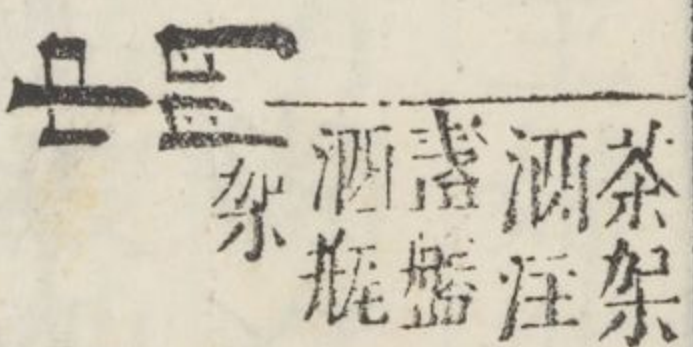 茶架
酒注
盞盤
酒瓶
架
中門